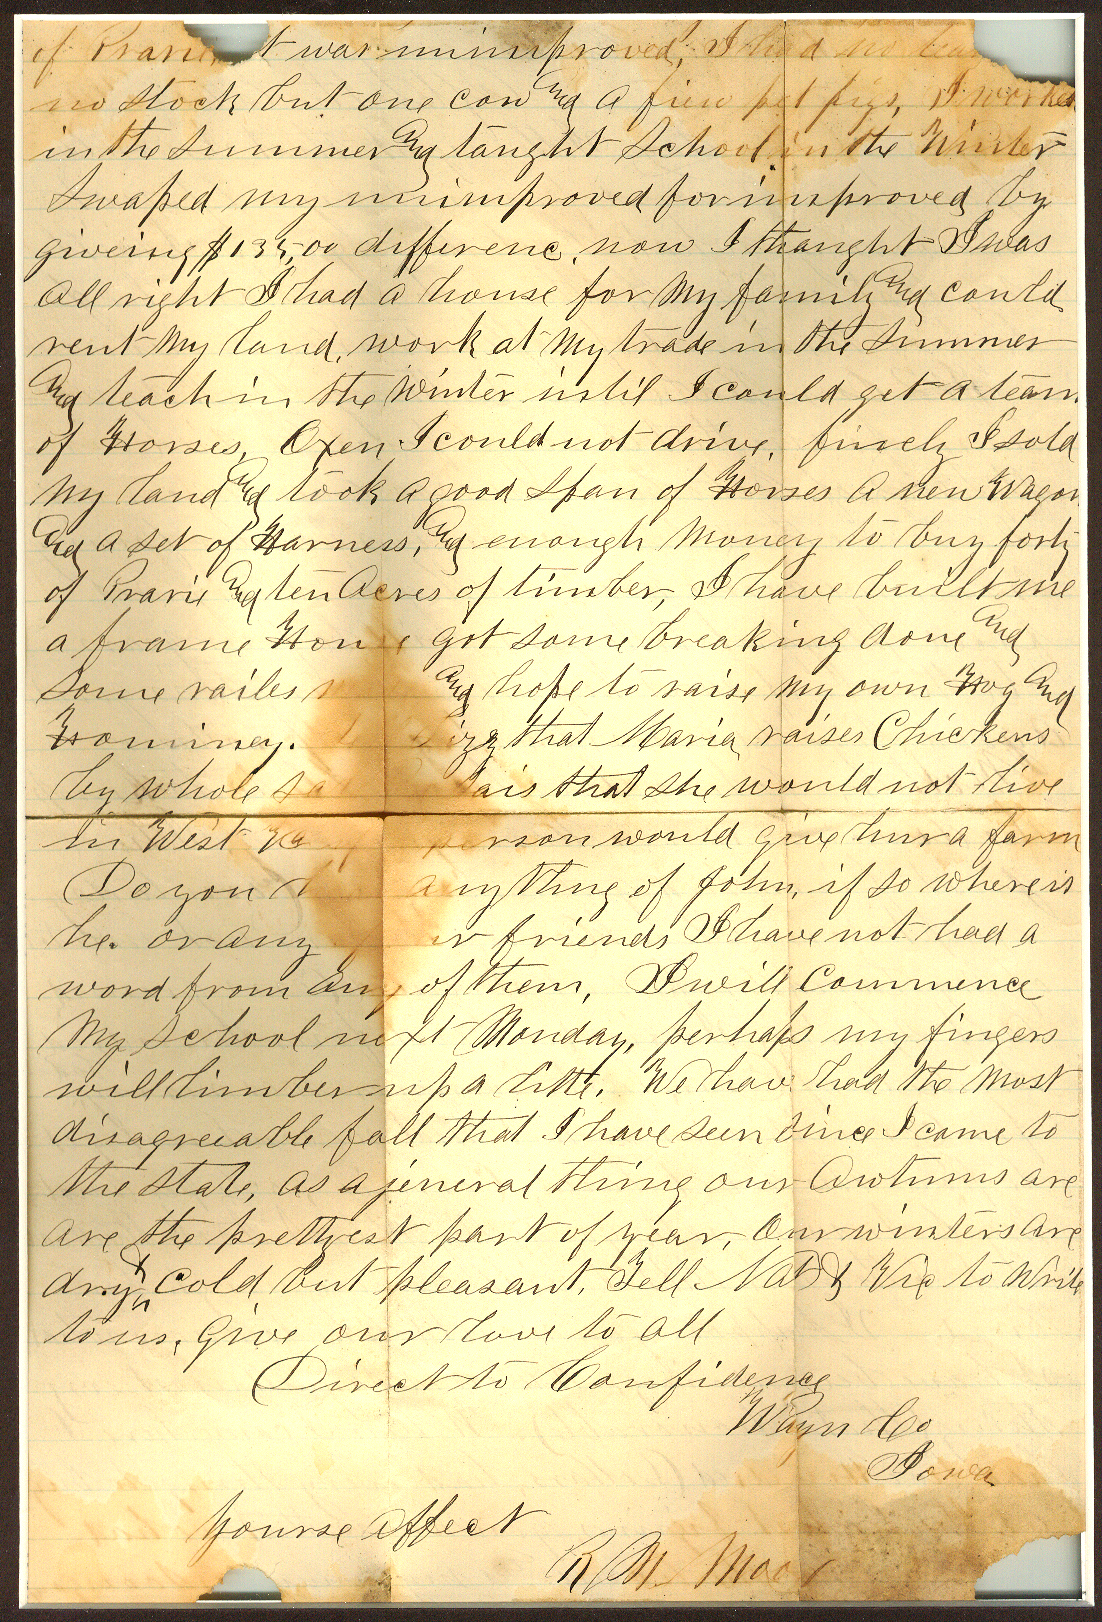 of Prarie t was unimproved, I had no tea
no stock but one cow and a fiew pet pigs, I worked
in the summer and taught School in the Winter
Swaped my unimproved for improved by
giveing $135,00 differenc, now I thaught I was
all right I had a house for my family and could
rent my land, work at my trade in the Summer
and teach in the Winter until I could get a team
of Horses, Oxen I could not drive, finely I sold
my land and took a good span of Horses a new Wagon
and a set of Harness, and enough money to buy forty
of Prarie and ten Acres of timber, I have built me
a frame House got some breaking done and
some railes and hope to raise my own Hog and
Hominey. that Maria raises Chickens
by whole sa that she would not live
in West person would give hur a farm
Do you anything of John, if so where is
he. or any friends I have not had a
word from any of them, I will Commence
My School next Monday, perhaps my fingers
will limber up a litte. We hav had the most
disagreeable fall that I have seen since I came to
the state, as a jeneral thing our Awtums are
are the prettyest part of year, Our winters are
dry & Cold, but pleasant, Tell Nat & Vic to write
to us, Give our love to all
Direct to Confidence
Wayn Co
Iowa
Yourse affect
R M Moo